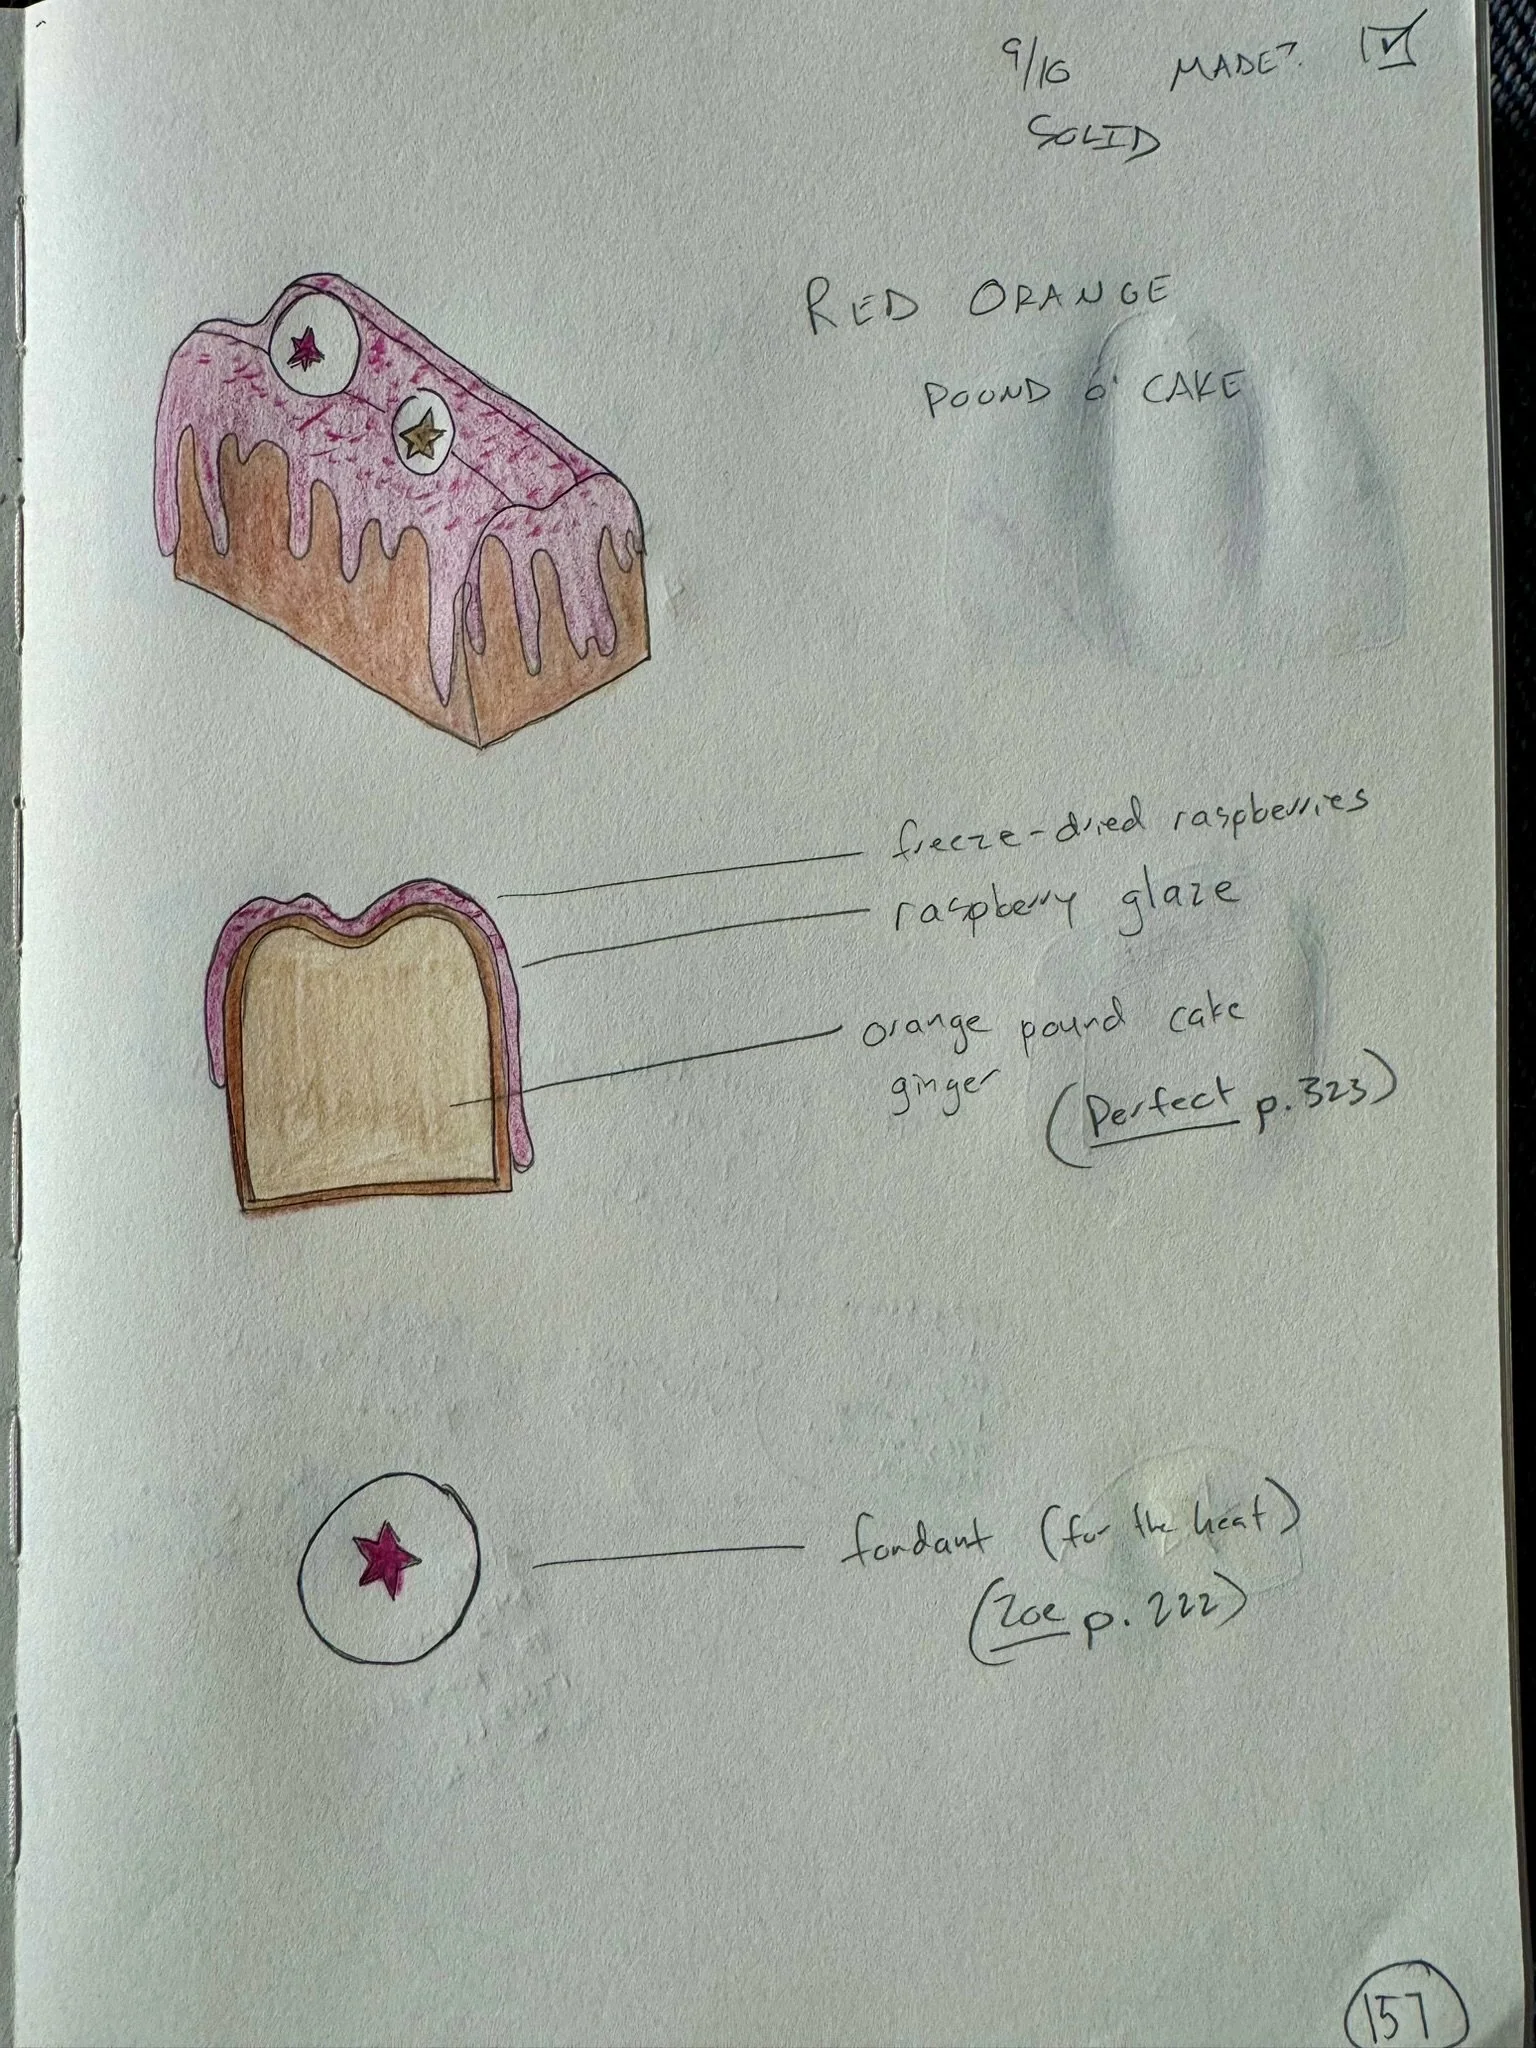 9/16 MADE?
SOLID
RED ORANGE
POUND O' CAKE
freeze-dried raspberries
raspberry glaze
orange pound cake
ginger
(Perfect p. 323)
fondant (for the heat)
(Zoe p. 222)
157